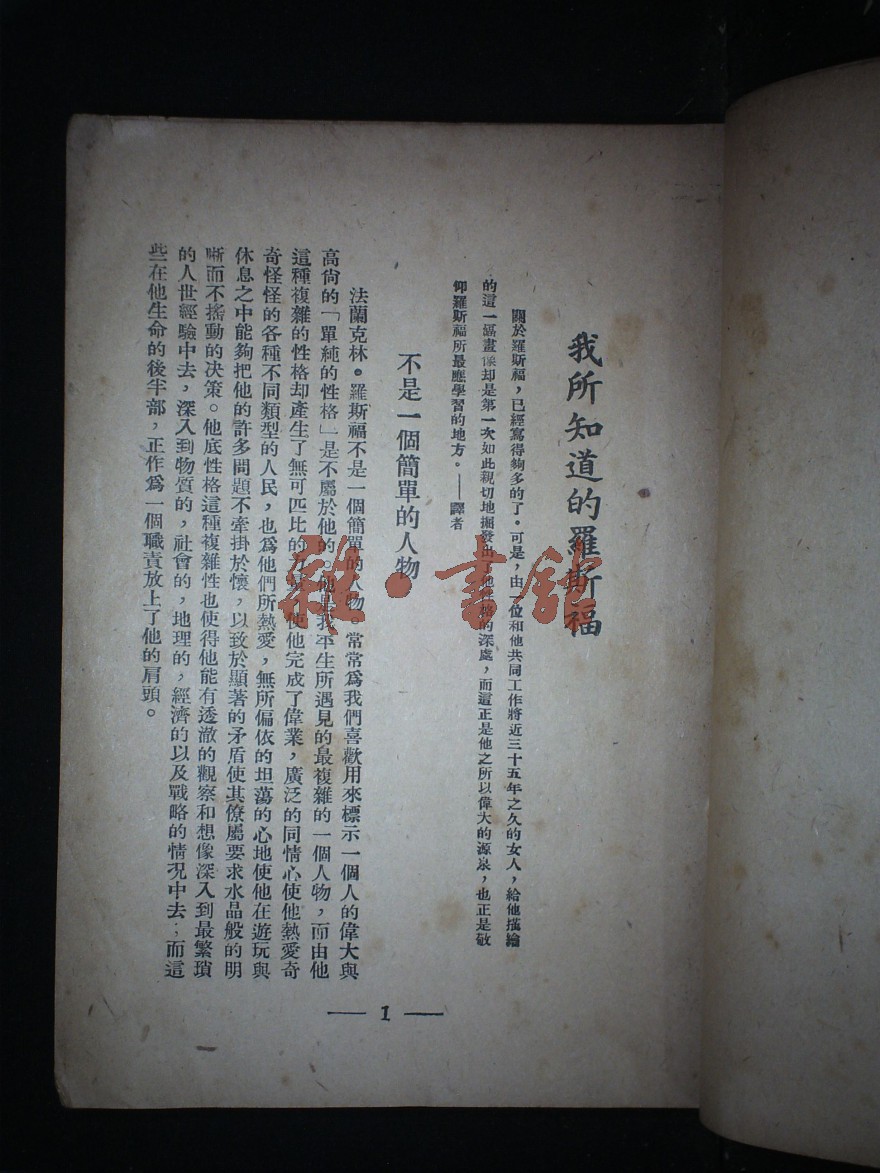 我所知道的羅斯福
關於羅斯福，已經寫得夠多的了。可是，由一位和他共同工作將近三十五年之久的女人，給他描繪
的這一幅畫像却是第一次如此親切地掘發出了他性格的深處，而這正是他之所以偉大的源泉，也正是敬
仰羅斯福所最應學習的地方。——譯者
不是一個簡單的人物
法蘭克林。羅斯福不是一個簡單的人物。常常爲我們喜歡用來標示一個人的偉大與
高尙的「單純的性格」是不屬於他的。他是我平生所遇見的最複雜的一個人物，而由他
這種複雜的性格却產生了無可匹比的力量，使他完成了偉業，廣泛的同情心使他熱愛奇
奇怪怪的各種不同類型的人民，也爲他們所熱愛，無所偏依的坦蕩的心地使他在遊玩與
休息之中能夠把他的許多問題不牽掛於懷，以致於顯著的矛盾使其僚屬要求水晶般的明
晰而不搖動的決策。他底性格這種複雜性也使得他能有透澈的觀察和想像深入到最繁瑣
的人世經驗中去，深入到物質的，社會的，地理的，經濟的以及戰略的情況中去；而這
些在他生命的後半部，正作爲一個職責放上了他的肩頭。
— 1 —
雜·書館